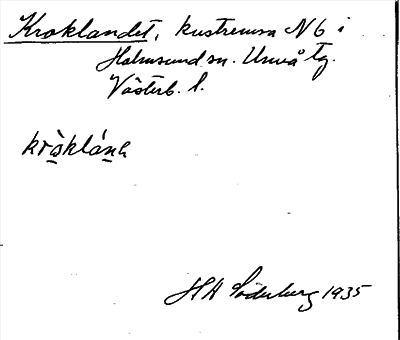 Kroklandet, kustremsa N 6 i
Holmsund sn. Umeå tg.
Västerb. l.
kròklánḁ
H A Söderberg 1935